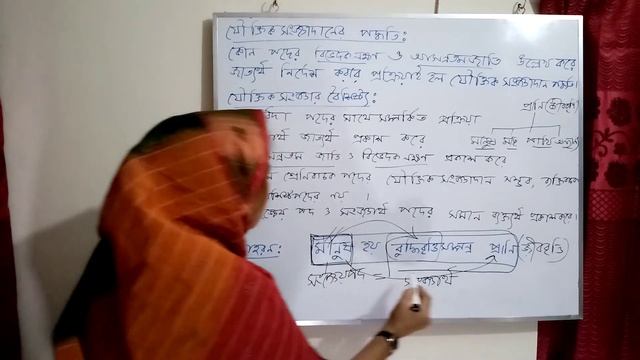 যৌক্তিক সংজ্ঞাদানের পদ্ধতি:
কোন পদের বিভেদক লক্ষণ ও আসন্নতম জাতি উল্লেখ করে
জাত্যর্থ নির্দেশ করার প্রক্রিয়াই হল যৌক্তিক সংজ্ঞাদান পদ্ধতি।
যৌক্তিক সংজ্ঞার বৈশিষ্ট্য:
পদের সাথে সম্পর্কিত প্রক্রিয়া
জাত্যর্থ প্রকাশ করে
মানুষ মাছ পাখি
জাতি ও বিভেদক লক্ষণ প্রকাশ করে
শ্রেণিবাচক পদের যৌক্তিক সংজ্ঞাদান সম্ভব,
পদের নয় ।
পদ ও সংজ্ঞার্থ পদের সমান ব্যক্ত্যর্থ প্রকাশ করে।
মানুষ হয় বুদ্ধিবৃত্তিসম্পন্ন প্রাণি (জীববৃত্তি)
সংজ্ঞেয় পদ = সংজ্ঞার্থ